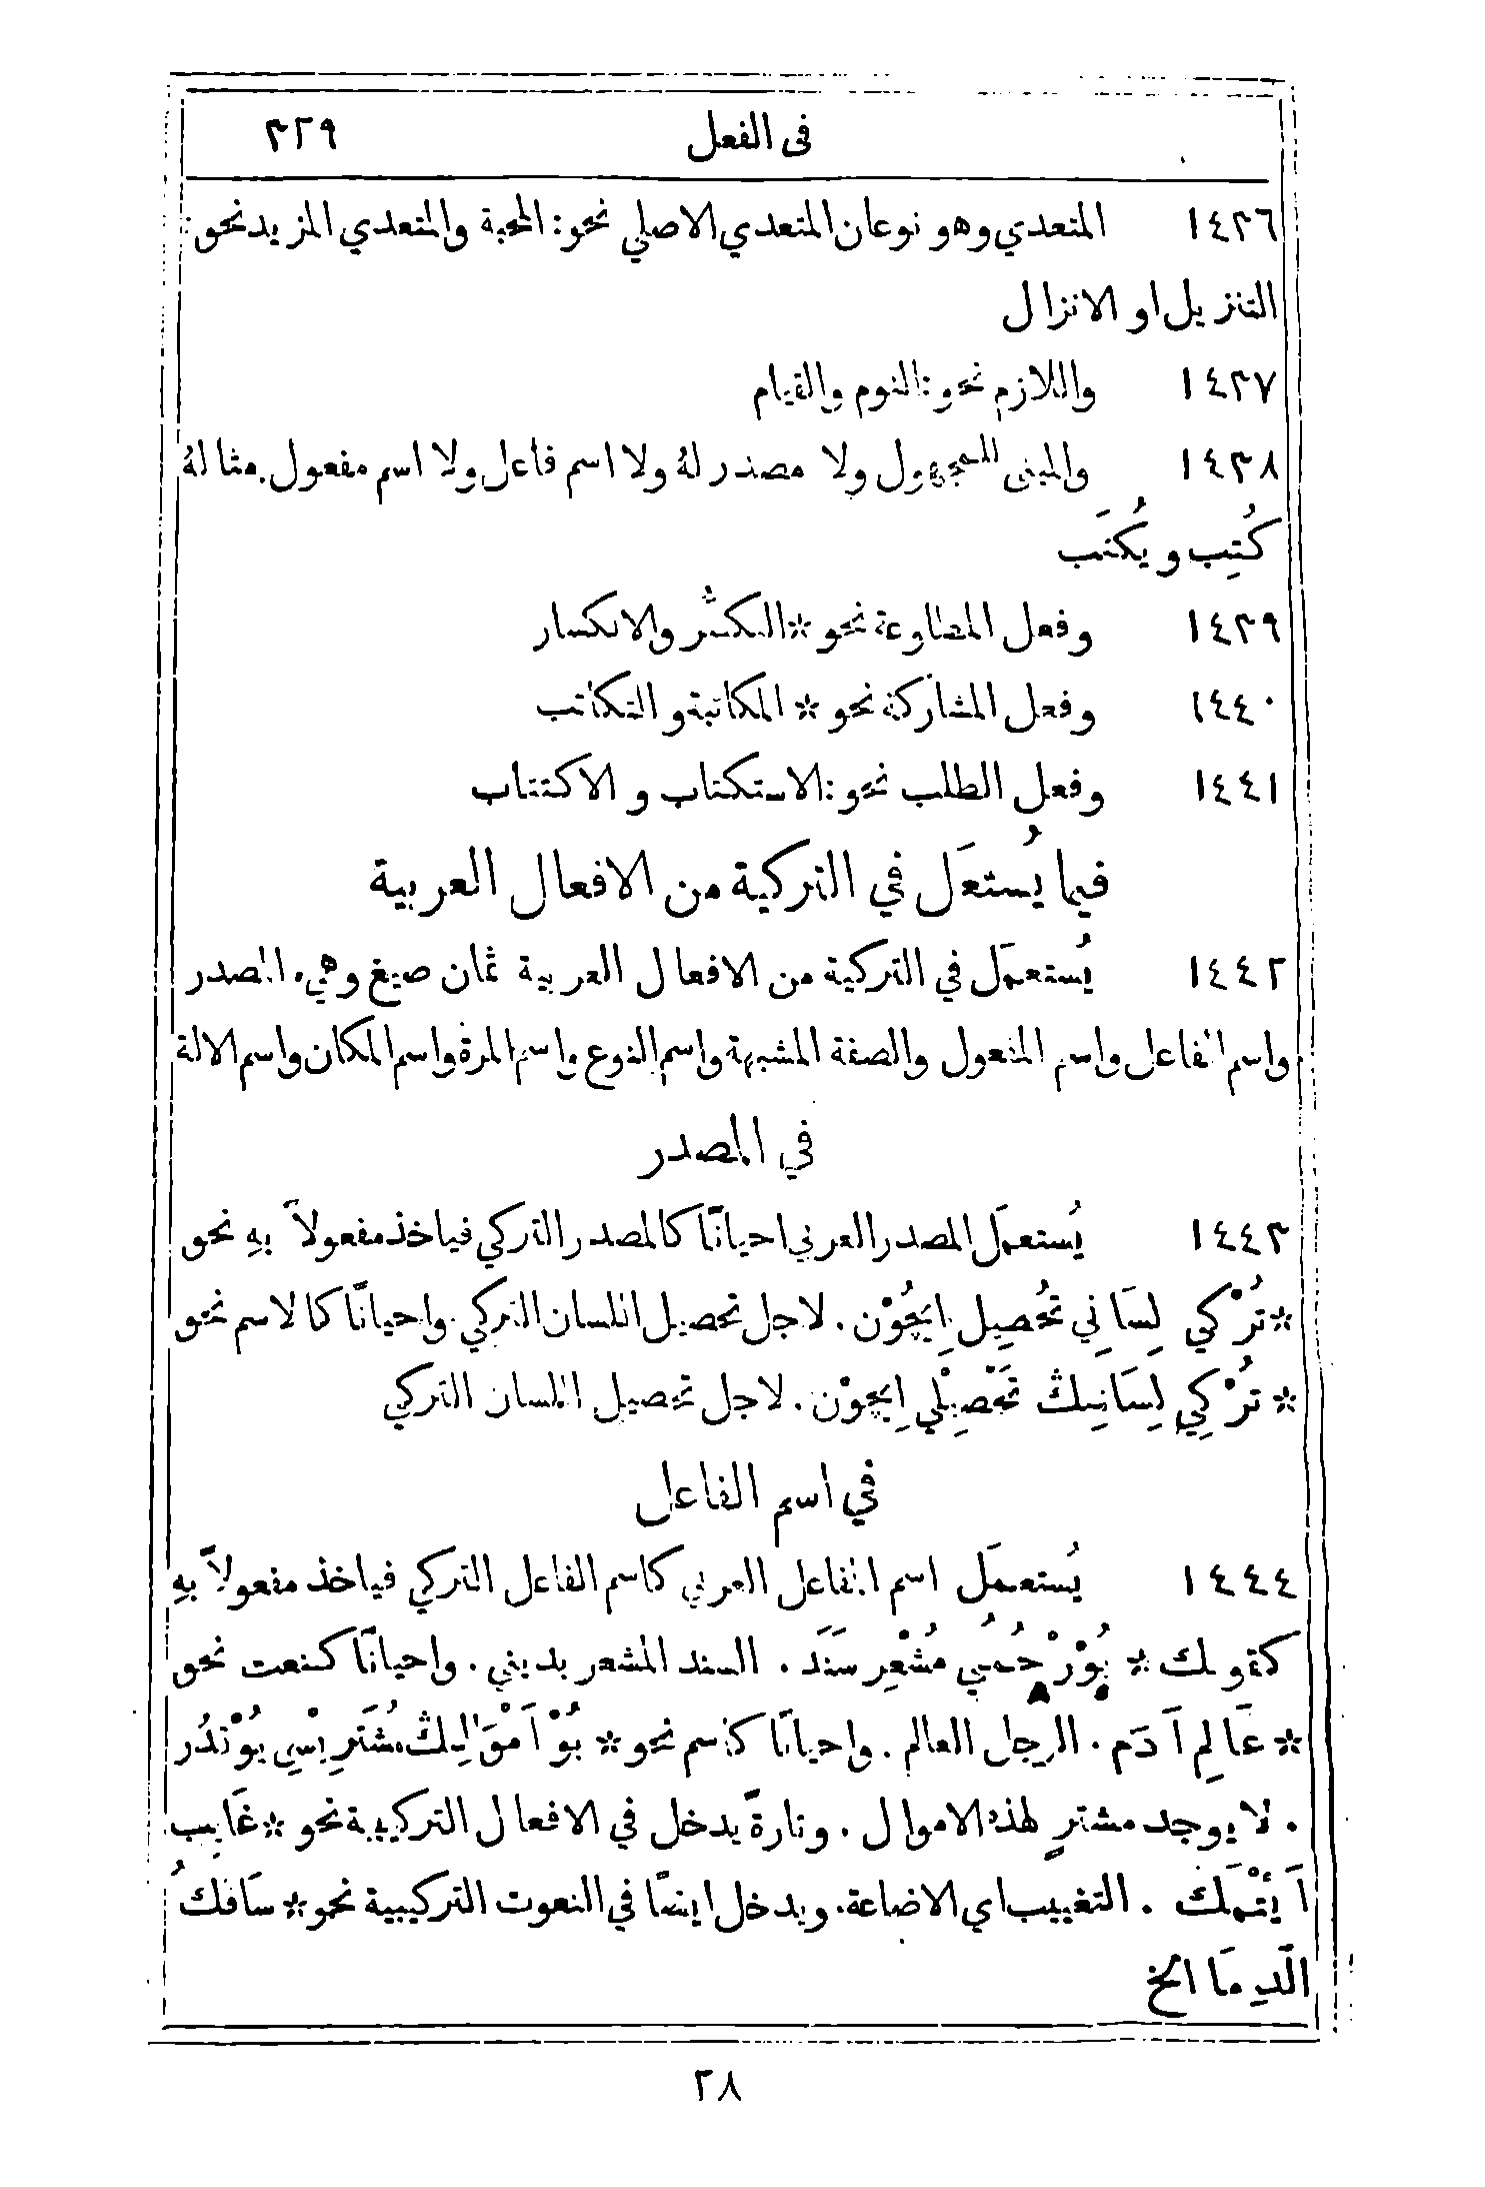 في الفعل ٣٢٩
١٤٣٦ المتعدي وهو نوعان المتعدي الاصلي نحو: المحبة والمتعدي المزيد نحو:
التنزيل او الانزال
١٤٣٧ واللازم نحو: النوم والقيام
١٤٣٨ والمبنى للمجهول ولا مصدر لهُ ولا اسم فاعل ولا اسم مفعول. مثالهُ
كُتِب ويُكتَب
١٤٣٩ وفعل المطاوعة نحو * التكسُّر والانكسار
١٤٤٠ وفعل المشاركة نحو * المكاتبة والتكاتب
١٤٤١ وفعل الطلب نحو: الاستكتاب و الاكتتاب
فيما يُستعمَل في التركية من الافعال العربية
١٤٤٢ يُستعمَل في التركية من الافعال العربية ثمان صيغ وهي. المصدر
واسم الفاعل واسم المفعول والصفة المشبهة واسم النوع واسم المرة واسم المكان واسم الالة
في المصدر
١٤٤٣ يُستعمَل المصدر العربي احيانًا كالمصدر التركي فياخذ مفعولاً بهِ نحو
* تُرْكي لِسَانِي تحُصِيل اِيچُوْن. لاجل تحصيل اللسان التركي. واحيانًا كالاسم نحو
* تُرْكِي لِسَانِڭ تَحْصِيْلِي اِيچوْن. لاجل تحصيل اللسان التركي
في اسم الفاعل
١٤٤٤ يُستعمَل اسم الفاعل العربي كاسم الفاعل التركي فياخذ مفعولاً بهِ
كقولك * بُوْرْجُمُي مُشْعِر سَنَد. السند المشعر بديني. واحيانًا كنعت نحو
* عَالِم آدَم. الرجل العالم. واحيانًا كاسم نحو * بُوْ اَمْوَالِڭ مُشْتَرِيْسِي يُوْقْدُر
. لا يوجد مشترٍ لهذه الاموال. وتارةً يدخل في الافعال التركيبية نحو * غَايِب
اَيْتْمَك. التغييب اي الاضاعة. ويدخل ايضًا في النعوت التركيبية نحو * سَافكُ
الَّدِمَا الخ
٢٨